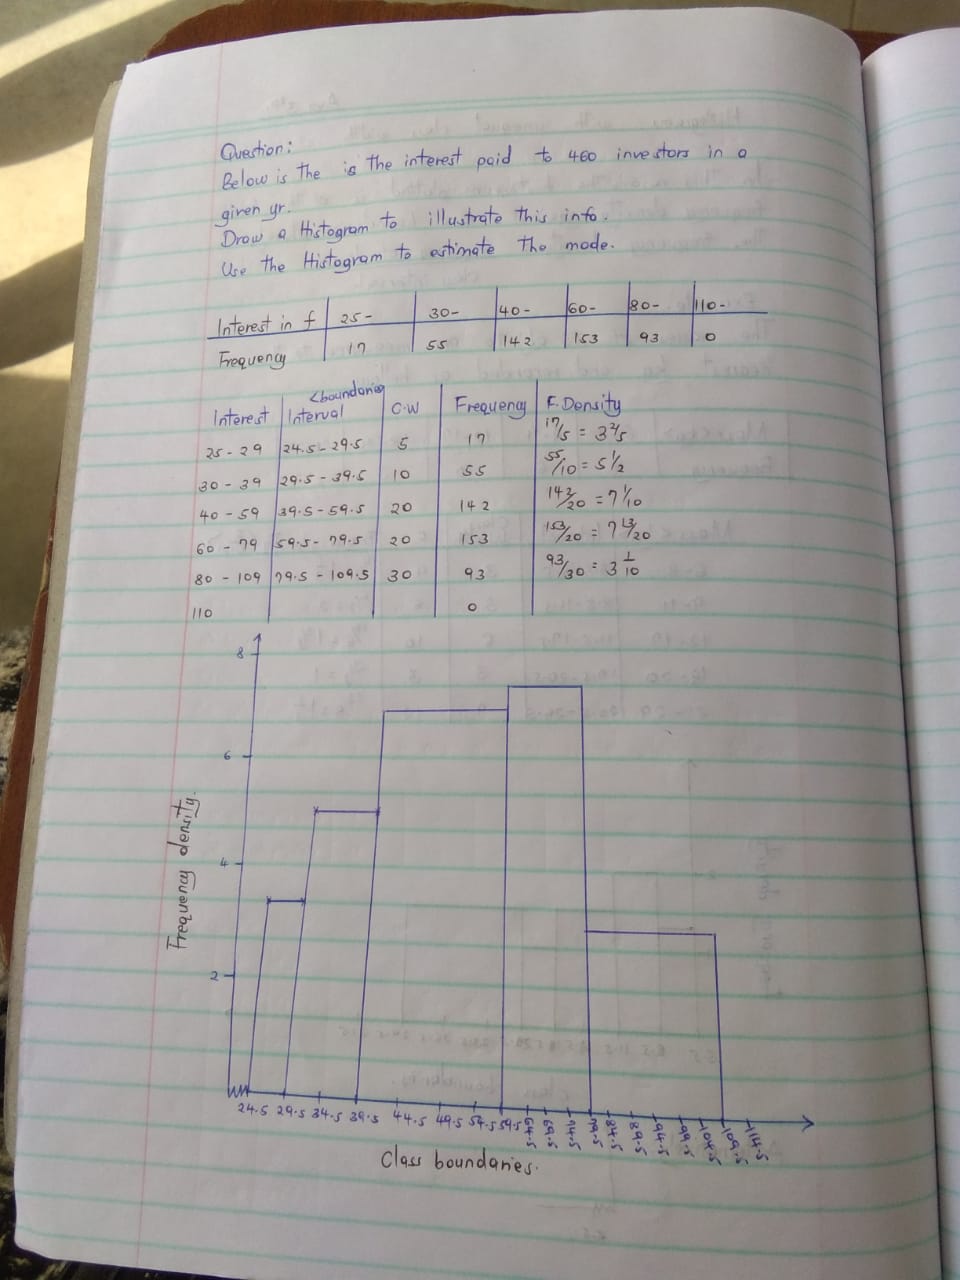 Question:
Below is the is the interest paid to 460 investors in a
given yr.
Draw a Histogram to illustrate this info.
Use the Histogram to estimate the mode.
Interest in £ 25- 30- 40- 60- 80- 110-
Frequency 17 55 142 153 93 0
Interest Interval <boundaries C.W Frequency F.Density
25 - 29 24.5 - 29.5 5 17 17/5 = 3 2/5
30 - 39 29.5 - 39.5 10 55 55/10 = 5 1/2
40 - 59 39.5 - 59.5 20 142 142/20 = 7 1/10
60 - 79 59.5 - 79.5 20 153 153/20 = 7 13/20
80 - 109 79.5 - 109.5 30 93 93/30 = 3 1/10
110 0
8
6
4
2
Frequency density.
24.5 29.5 34.5 39.5 44.5 49.5 54.5 59.5 64.5 69.5 74.5 79.5 84.5 89.5 94.5 99.5 104.5 109.5 114.5
Class boundaries.